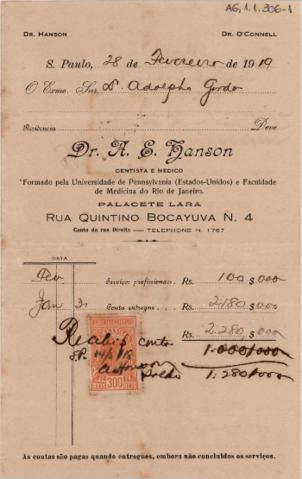 AG, 1.1.306-1
DR. HANSON DR. O'CONNELL
S. Paulo, 28 de Fevereiro de 1919
O Exmo. Snr. Dr. Adolpho Gordo
Residencia Deve
Dr. A. E. Hanson
DENTISTA E MEDICO
Formado pela Universidade de Pennsylvania (Estados-Unidos) e Faculdade
de Medicina do Rio de Janeiro.
PALACETE LARA
RUA QUINTINO BOCAYUVA N. 4
Canto da rua Direita — TELEPHONE N. 1767
DATA
Fev. Serviços profissionaes. Rs. 100 $000
Jan 31 Conta entregue, Rs. 2.180 $000
Rs. 2.280 $000
conta 1.000$000
300
A Hanson Saldo 1.280$000
As contas são pagas quando entregues, embora não concluidos os serviços.